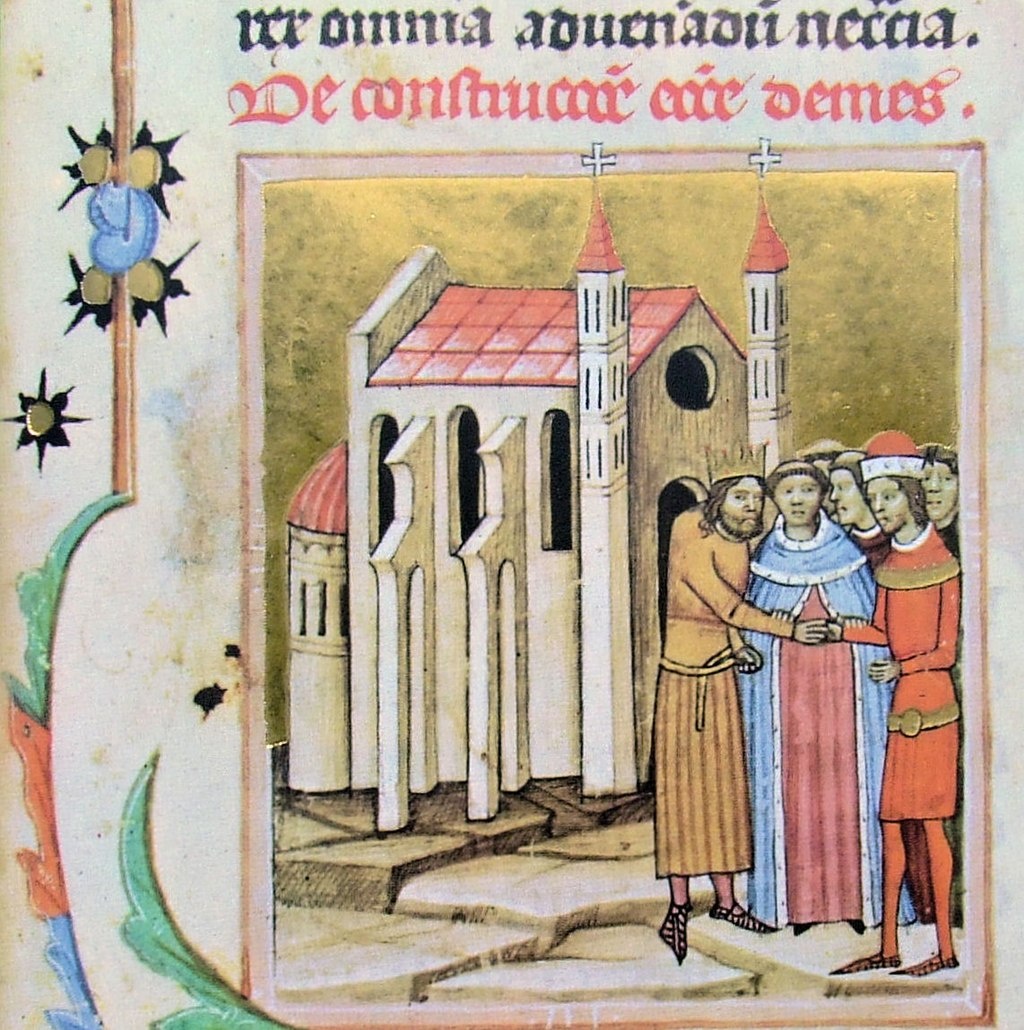 rex omnia aduenādū neccīa.
De construccōē eccē demeſ.